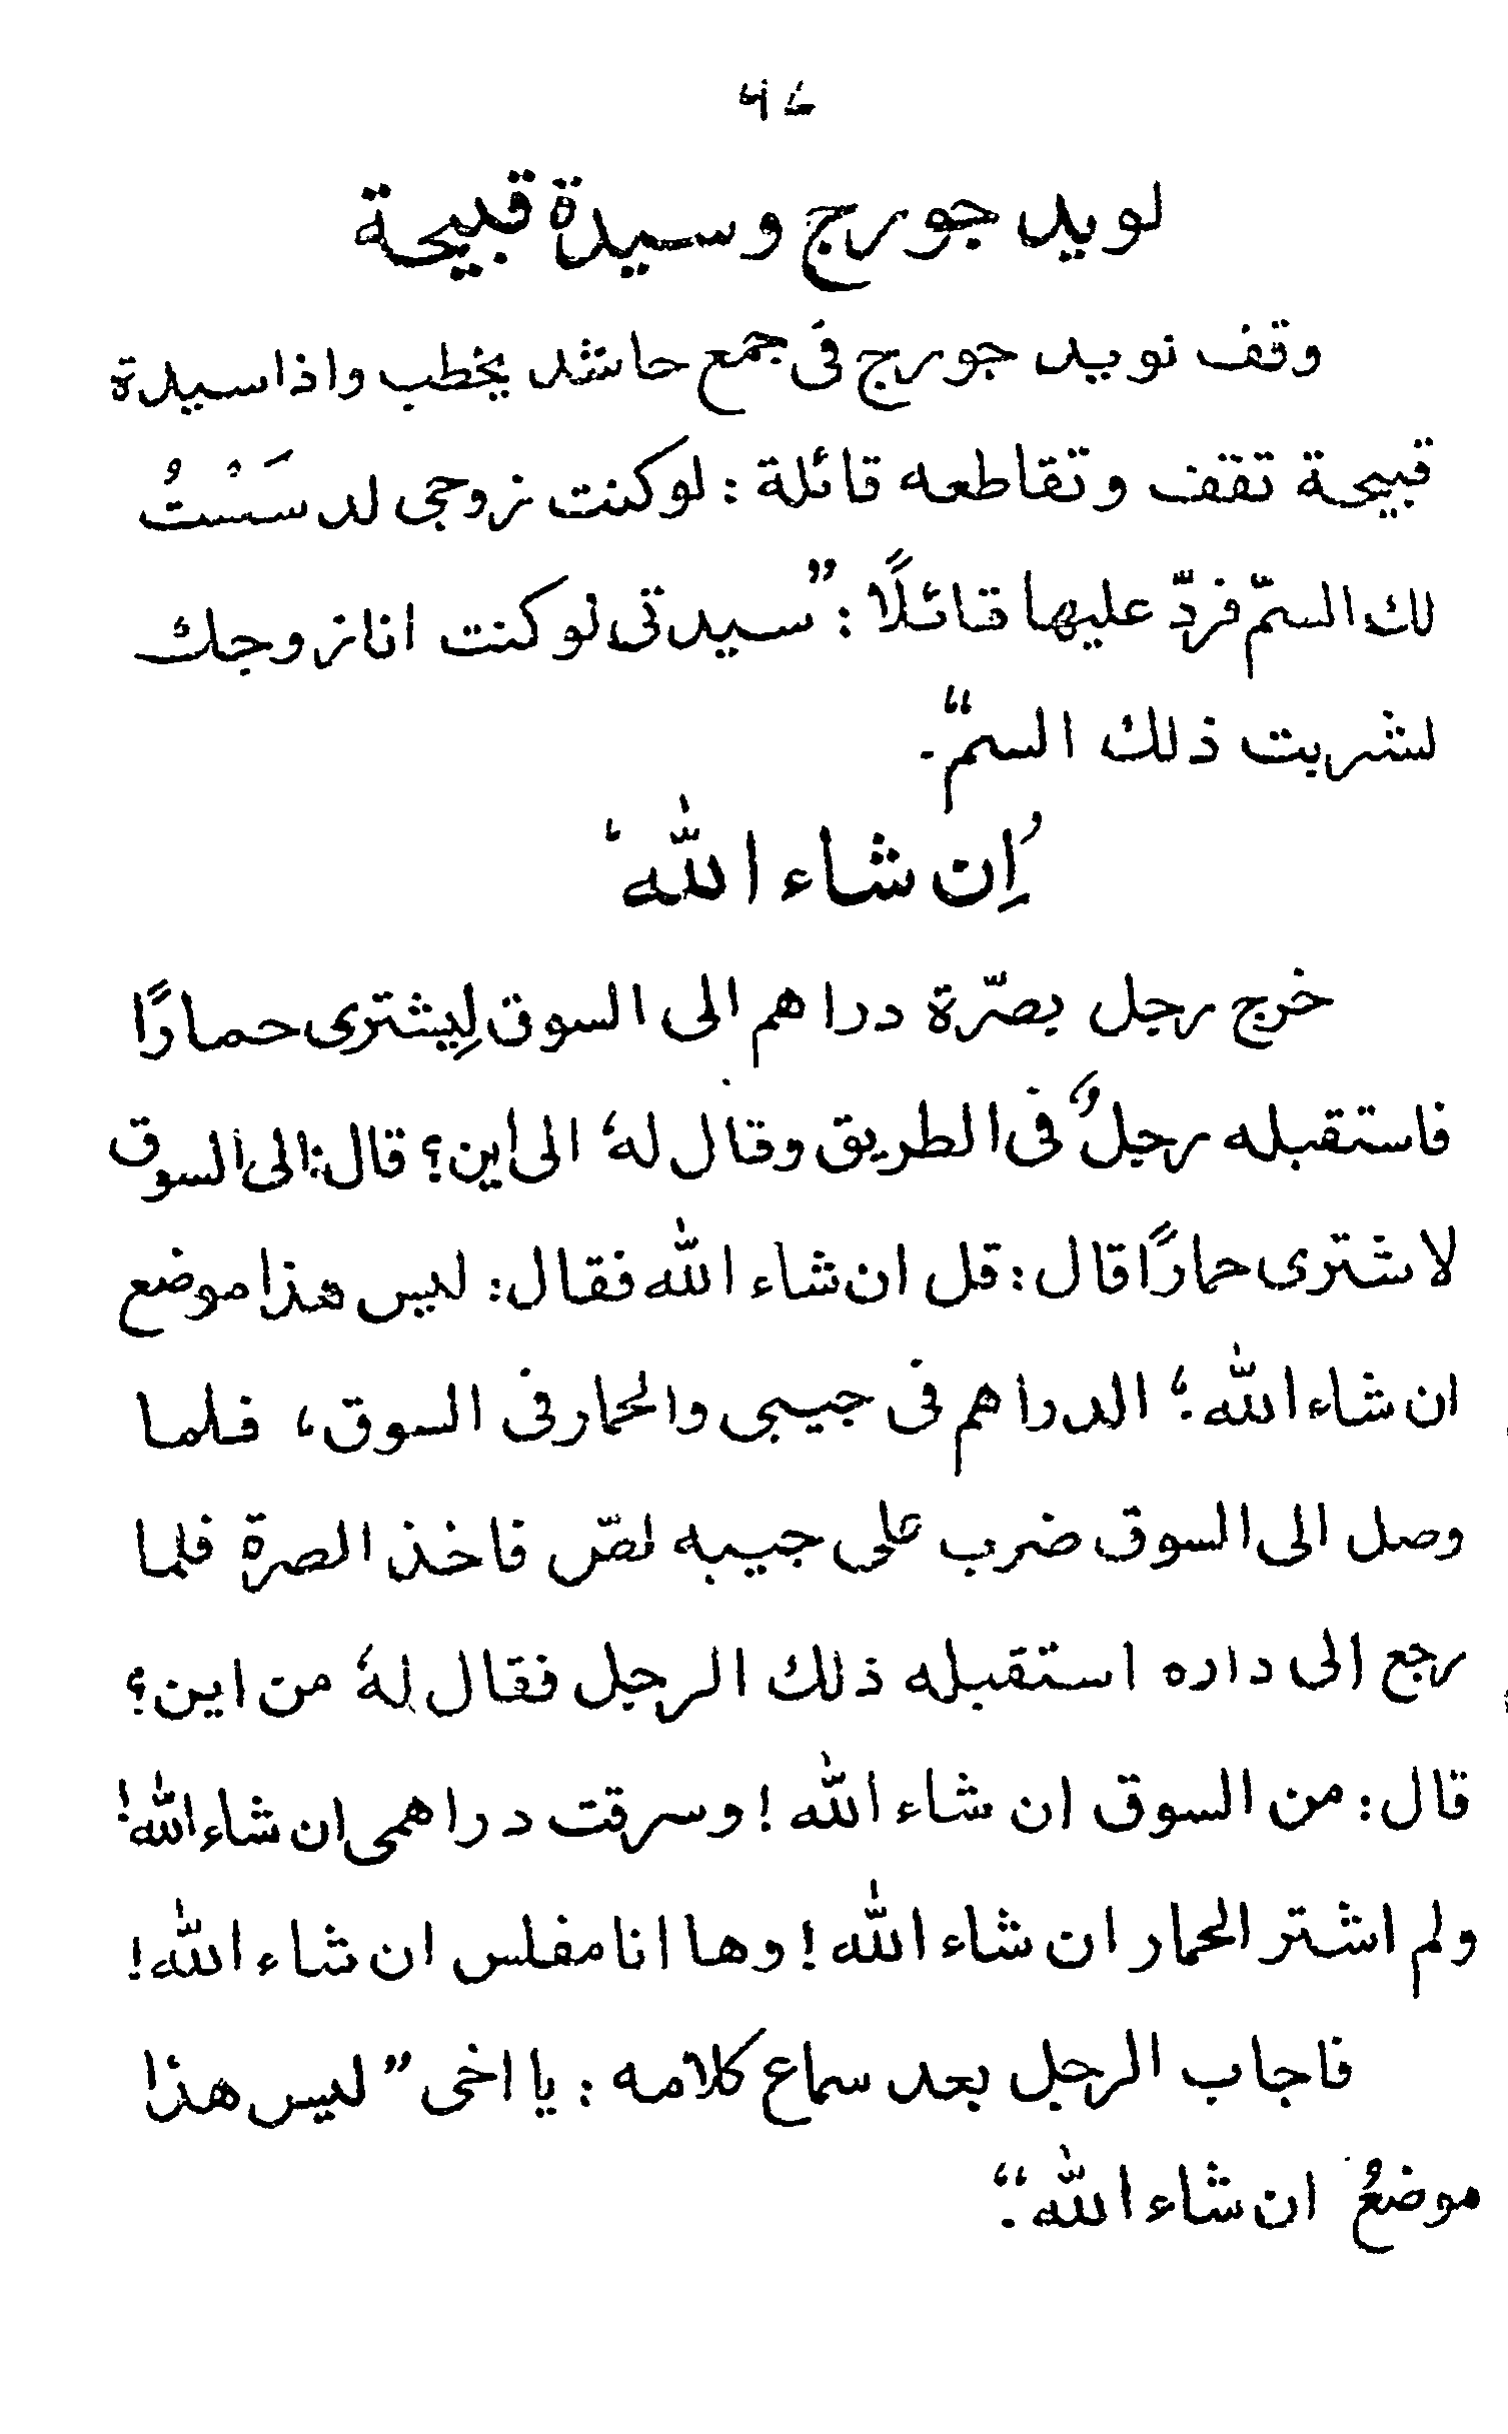 لويد جورج وسيدة قبيحة
وقف نويد جورج فى جمع حاشد يخطب واذا سيدة
قبيحة تقف وتقاطعه قائلة : لوكنت زوجى لدسَسْتُ
لك السمّ فردّ عليها قائلًا : ”سيدتى لو كنت انا زوجك
لشربت ذلك السمّ“.
’اِن شاء الله‘
خرج رجل بصّرة دراهم الى السوق لِيشترى حمارًا
فاستقبله رجلٌ فى الطريق وقال لهٗ الى اين؟ قال: الى السوق
لاشترى حمارًا قال : قل ان شاء الله فقال: ليس هذا موضع
ان شاء الله؛ الدراهم فى جيبى والحمار فى السوق، فلما
وصل الى السوق ضرب على جيبه لصّ فاخذ الصرة فلما
رجع الى داره استقبله ذلك الرجل فقال لهٗ من اين؟
قال: من السوق ان شاء الله! وسرقت دراهمى ان شاء الله!
ولم اشتر الحمار ان شاء الله! وها انا مفلس ان شاء الله!
فاجاب الرجل بعد سماع كلامه : يا اخى ”ليس هذا
موضعُ ان شاء الله“.